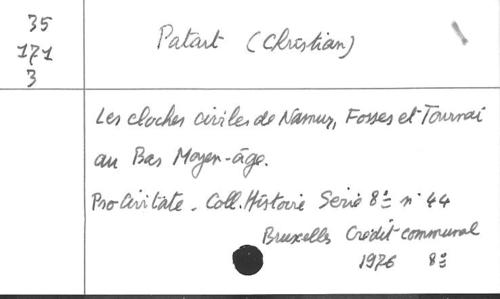 35
171
3
Patart (Christian)
Les cloches civiles de Namur, Fosses et Tournai
au Bas Moyen-âge.
Pro Civitate. Coll. Histoire Serie 8º n° 44
Bruxelles Crédit communal
1976 8º